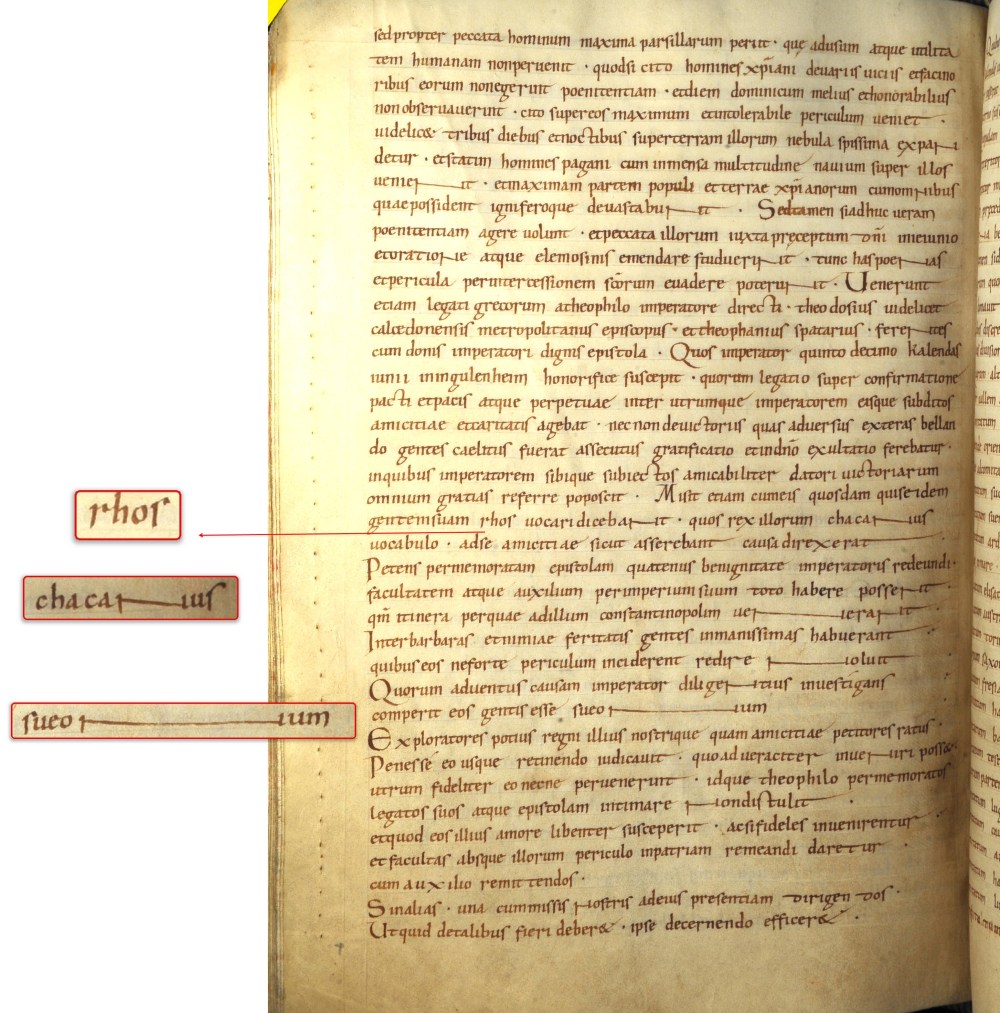 rhos
chacanus
sueonum
sed propter peccata hominum maxima pars illarum periit · quę adusum atque utilita
tem humanam non pervenit · quodsi cito homines xp̄iani devariis viciis et facino
ribus eorum non egerint poenitentiam · et diem dominicum melius et honorabilius
non observaverint · cito super eos maximum et intolerabile periculum veniet ·
videlic& tribus diebus et noctibus super terram illorum nebula spissima expan
detur · et statim homines pagani cum inmensa multitudine navium super illos
venient · et maximam partem populi et terrae xp̄ianorum cum omnibus
quae possident igni ferroque devastabunt · Sed tamen si adhuc veram
poenitentiam agere volunt · et peccata illorum iuxta pręceptum dn̄i in ieiunio
et oratione atque elemosinis emendare studuerint · tunc has poenas
et pericula per intercessionem sc̄orum evadere poterunt · Venerunt
etiam legati grecorum a theophilo imperatore directi · theodosius videlicet
calcedonensis metropolitanus episcopus · et theophanius spatarius · ferentes
cum donis imperatori dignis epistola · Quos imperator quinto decimo kalendas
iunii in ingulenheim honorifice suscepit · quorum legatio super confirmatione
pacti et pacis atque perpetuae inter utrumque imperatorem eique subditos
amicitiae et caritatis agebat · nec non de victoriis quas adversus exteras bellan
do gentes caelitus fuerat assecutus gratificatio et in dn̄o exultatio ferebatur ·
in quibus imperatorem sibique subiectos amicabiliter datori victoriarum
omnium gratias referre poposcit · Misit etiam cum eis quosdam qui se idem
gentem suam rhos vocari dicebant · quos rex illorum chacanus
vocabulo · ad se amicitiae sicut asserebant causa direxerat
Petens per memoratam epistolam quatenus benignitate imperatoris redeundi ·
facultatem atque auxilium per imperium suum toto habere possent ·
qm̄ itinera per quae ad illum constantinopolim venerant ·
Inter barbaras et nimiae feritatis gentes inmanissimas habuerant
quibus eos ne forte periculum inciderent redire noluit ·
Quorum adventus causam imperator diligentius investigans
comperit eos gentis esse sueonum
Exploratores potius regni illius nostrique quam amicitiae petitores ratus ·
Penes se eo usque retinendo iudicavit · quo ad veraciter inveniri poss&
utrum fideliter eo necne pervenerint · idque theophilo per memoratos
legatos suos atque epistolam intimare non distulit ·
et quod eos illius amore libenter susceperit · ac si fideles invenirentur
et facultas absque illorum periculo in patriam remeandi daretur
cum auxilio remittendos ·
Sin alias · una cum missis nostris ad eius presentiam dirigendos ·
Ut quid de talibus fieri deber& · ipse decernendo efficer& ·